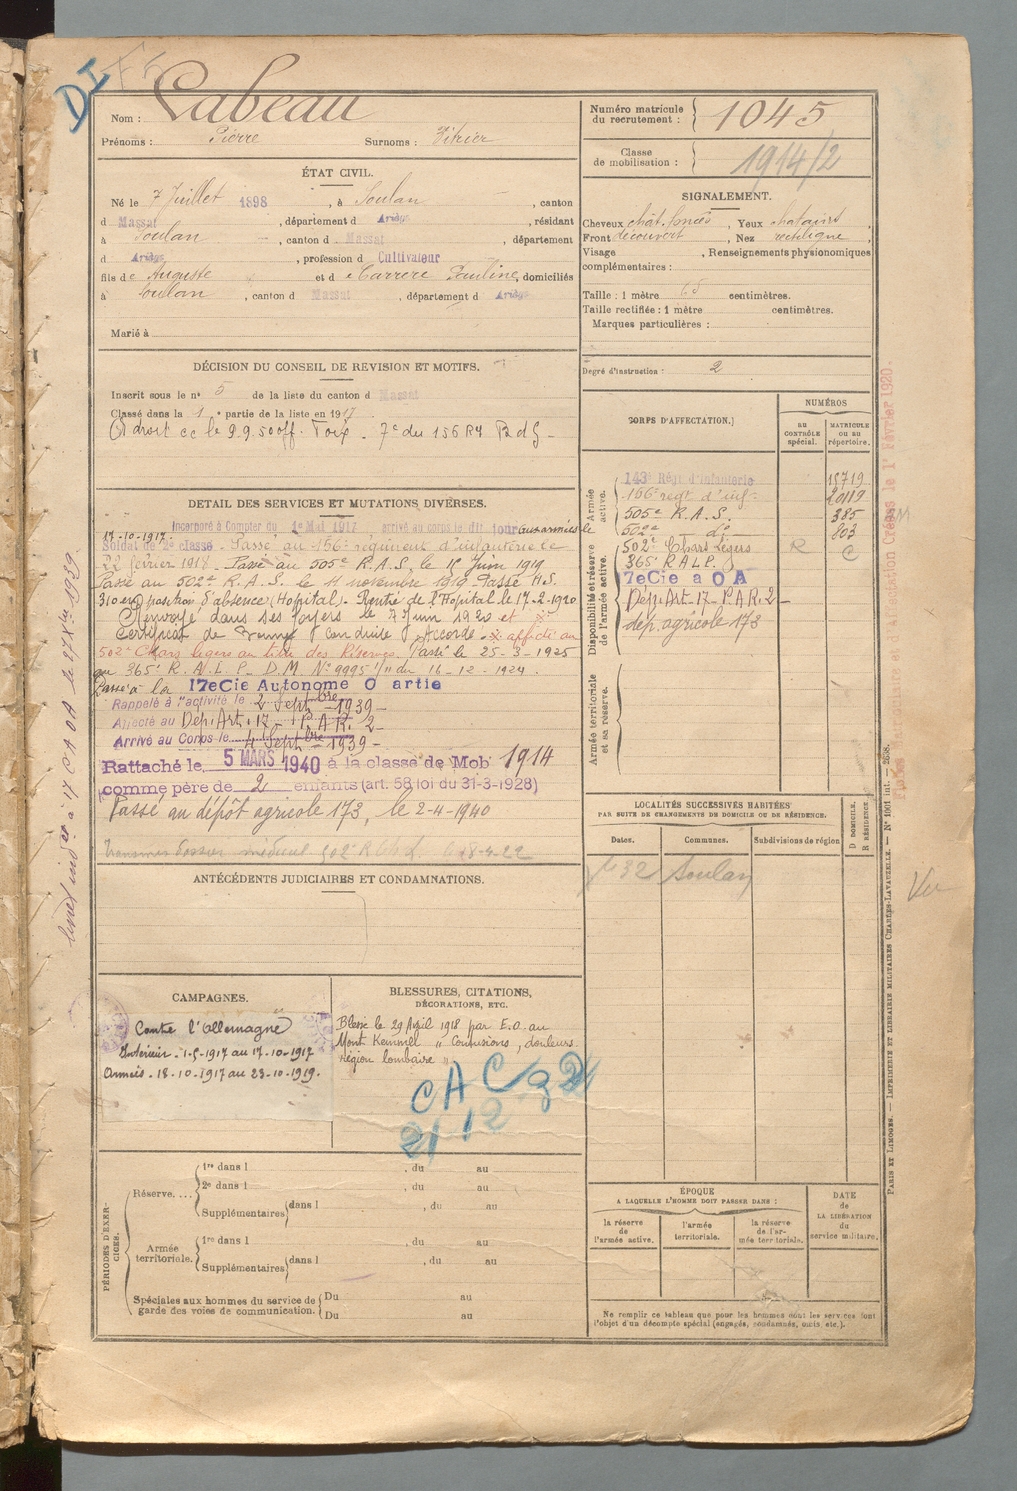 DI
Nom : Labeau
Prénoms : Pierre Surnoms :
Numéro matricule du recrutement : 1045
Classe de mobilisation : 1914/2
ÉTAT CIVIL.
Né le 7 Juillet 1898, à Soulan, canton
d Massat, département d Ariège, résidant
à Soulan, canton d Massat, département
d Ariège, profession d Cultivateur
fils de Auguste et d e Carrère Pauline, domiciliés
à Soulan, canton d Massat, département d Ariège
Marié à
SIGNALEMENT.
Cheveux chât. foncés, Yeux chatains
Front découvert, Nez rectiligne,
Visage , Renseignements physionomiques
complémentaires :
Taille : 1 mètre 65 centimètres.
Taille rectifiée : 1 mètre centimètres.
Marques particulières :
Degré d'instruction : 2
DÉCISION DU CONSEIL DE REVISION ET MOTIFS.
Inscrit sous le n° 5 de la liste du canton d Massat
Classé dans la 1e partie de la liste en 1917
DÉTAIL DES SERVICES ET MUTATIONS DIVERSES.
Incorporé à Compter du 1e Mai 1917 arrivé au corps le dit jour Aux armées le
17-10-1917.
Soldat de 2e classe. Passé au 156e régiment d'infanterie le
22 février 1918. Passé au 505e R.A.S. le 15 Juin 1919
Passé au 502e R.A.S. le 11 novembre 1919. Passé H.S.
310 en position d'absence (Hopital). Rentré de l'Hopital le 17-2-1920
Renvoyé dans ses foyers le 7 Juin 1920 et
Certificat de Bonne Conduite Accordé. affecté au
502e Chars légers au titre des Réserves. Passé le 25-3-1925
au 365e R.A.L.P. D.M. N° 9995 1/11 du 16-12-1924.
Passé à la 17eCie Autonome O artie
Rappelé à l'activité le 2 Septbre 1939-
Affecté au Dép. Art. 17 - P.A.R. 2-
Arrivé au Corps le 4 Septbre 1939-
Rattaché le 5 MARS 1940 à la classe de Mob 1914
comme père de 2 enfants (art. 58 loi du 31-3-1928)
Passé au dépôt agricole 173, le 2-4-1940
CORPS D'AFFECTATION.
NUMÉROS
AU CONTRÔLE spécial.
MATRICULE ou au répertoire.
Armée active.
143e Régt d'Infanterie 15719
156e régt d'inf- 20119
505e R.A.S. 385
502e do 803
Disponibilité et réserve de l'armée active.
502e Chars légers R C
365e R A L P.
7eCie a O A
Dép. Art-17- P.A.R. 2-
dép. agricole 173
Armée territoriale et sa réserve.
LOCALITÉS SUCCESSIVES HABITÉES
PAR SUITE DE CHANGEMENTS DE DOMICILE OU DE RÉSIDENCE.
Dates. Communes. Subdivisions de région
D DOMICILE. R RÉSIDENCE.
32 Soulan
Vu
ANTÉCÉDENTS JUDICIAIRES ET CONDAMNATIONS.
CAMPAGNES.
Contre l'Allemagne
Intérieur - 1-5-1917 au 17-10-1917
Armées - 18-10-1917 au 23-10-1919.
BLESSURES, CITATIONS,
DÉCORATIONS, ETC.
Blessé le 29 Avril 1918 par E.O. au
Mont Kemmel " Contusions, douleurs
région lombaire "
CAC
21 12
PÉRIODES D'EXERCICES.
Réserve....
1re dans l , du au
2e dans l , du au
Supplémentaires dans l , du au
Armée territoriale.
1re dans l , du au
Supplémentaires dans l , du au
Spéciales aux hommes du service de garde des voies de communication.
Du au
Du au
ÉPOQUE
A LAQUELLE L'HOMME DOIT PASSER DANS :
la réserve de l'armée active.
l'armée territoriale.
la réserve de l'armée territoriale.
DATE DE LA LIBÉRATION du service militaire.
Ne remplir ce tableau que pour les hommes dont les services font
l'objet d'un décompte spécial (engagés, condamnés, omis, etc.).
PARIS ET LIMOGES. — IMPRIMERIE ET LIBRAIRIE MILITAIRES CHARLES-LAVAUZELLE. — N° 1001 int. —